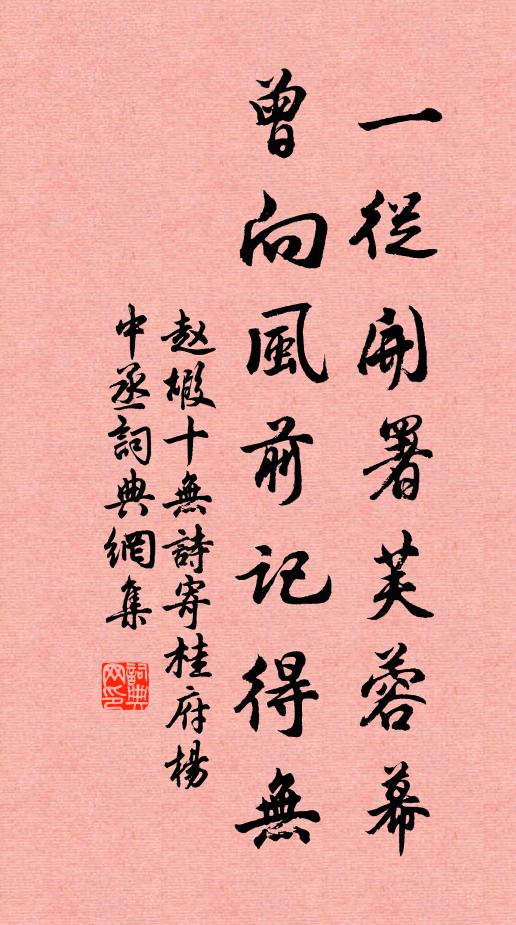 一從開署芙蓉幕
曾向風前記得無
赵嘏十無詩寄桂府楊
中丞詞典網集
詞典网印